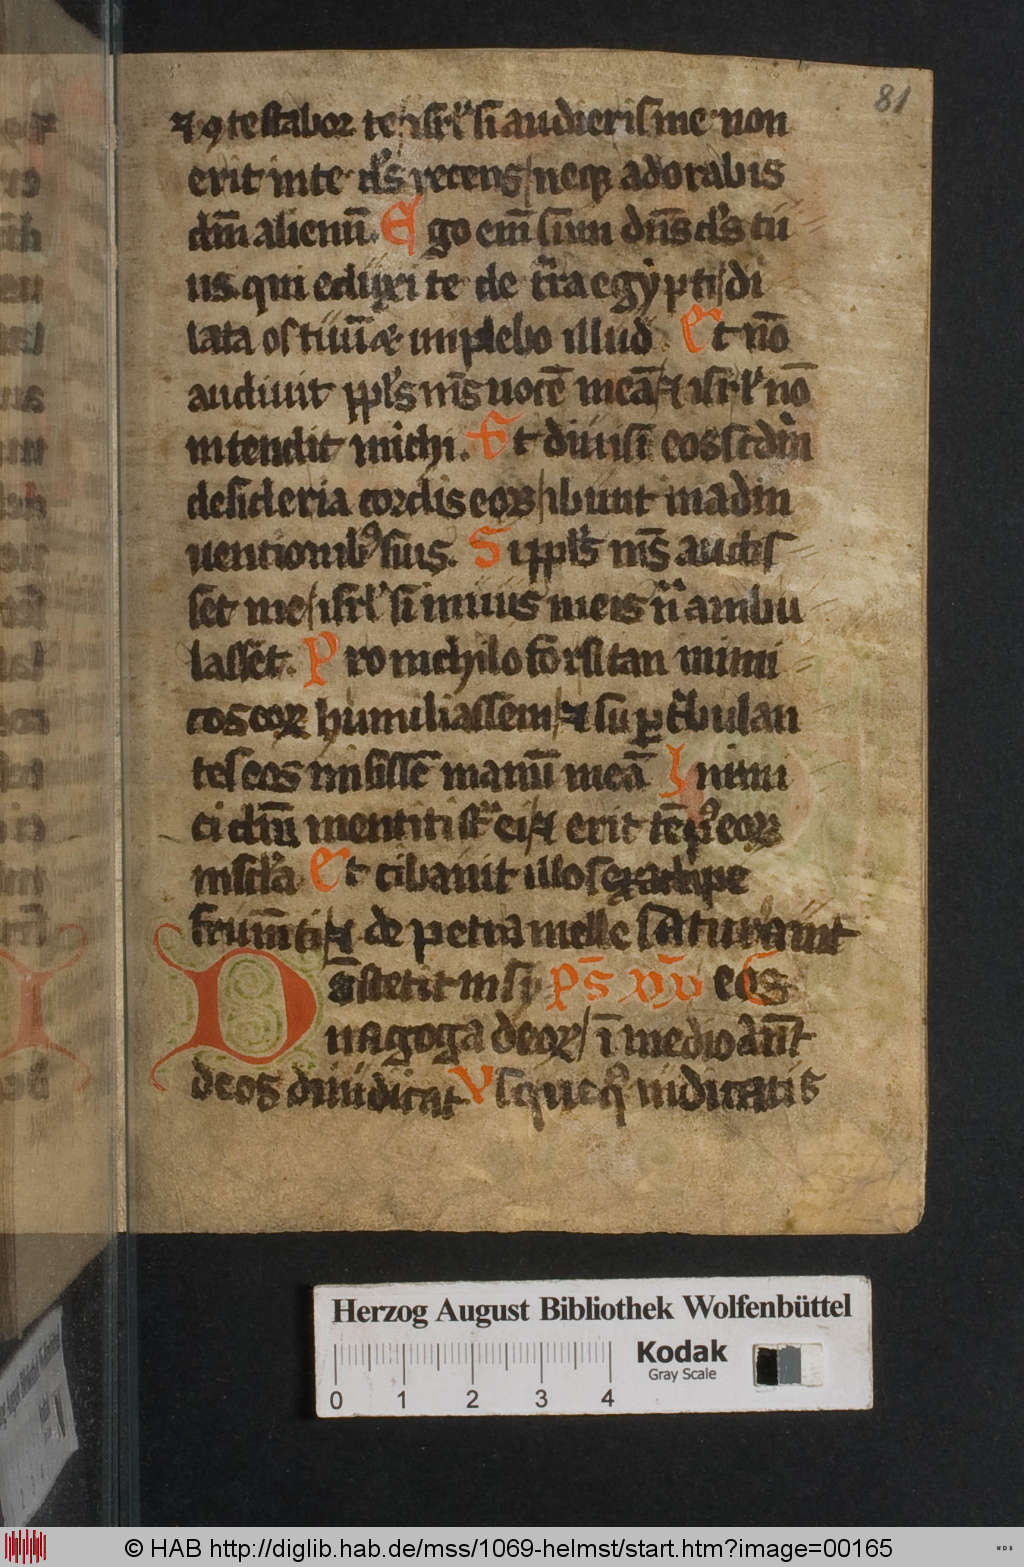 81
⁊ ꝯtestabor te isrl̅ si audieris me non
erit in te ds̅ recens / neqꝫ adorabis
dm̅ alienū. Ego em̅ sum dn̅s ds̅ tu
us qui eduxi te de tr̅a egypti / di
lata os tuū & implebo illud. Et nō
audiuit ppl̅s ms̅ uocē meā / ⁊ isrl̅ nō
intendit michi. Et diuisi eos scdm̅
desideria cordis eoꝝ / ibunt in adin
uentionibꝰ suis. Si ppl̅s ms̅ audis
set me / isrl̅ si in uiis meis
lasset. Pro nichilo forsitan inimi
cos eoꝝ humiliassem / ⁊ suꝑ t̅bulan
tes eos misissē manū meā Inimi
ci dm̅ mentiti st̅ ei / ⁊ erit eoꝝ
in scl̅a Et cibauit illos ex adipe
frum̅ti / ⁊ de petra melle saturauit
Ds̅ stetit in sy ps̅ eos
nagoga deoꝝ / ī medio
deos diiudicat Vsquequo iudicatis
Herzog August Bibliothek Wolfenbüttel
Kodak
Gray Scale
0 1 2 3 4
© HAB http://diglib.hab.de/mss/1069-helmst/start.htm?image=00165